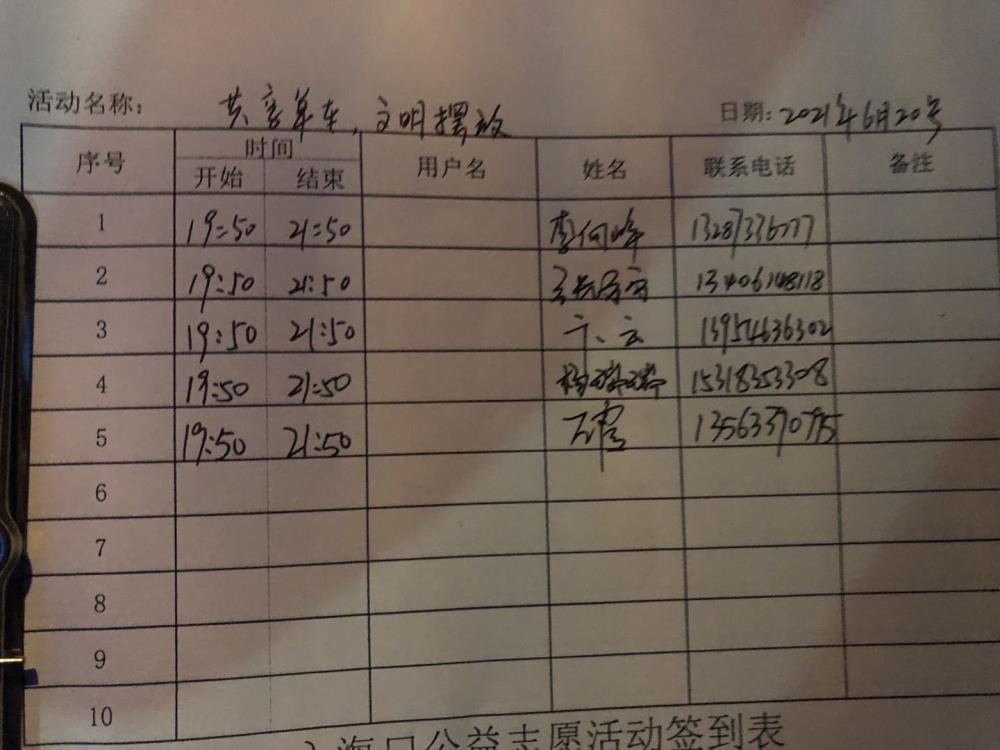 活动名称: 共享单车,文明摆放 日期: 2021年6月20号
序号 时间 用户名 姓名 联系电话 备注
开始 结束
1 19:50 21:50 李向峰
2 19:50 21:50 13406148118
3 19:50 21:50 13954636302
4 19:50 21:50 15318353308
5 19:50 21:50 13563370775
6
7
8
9
10
海口公益志愿活动签到表